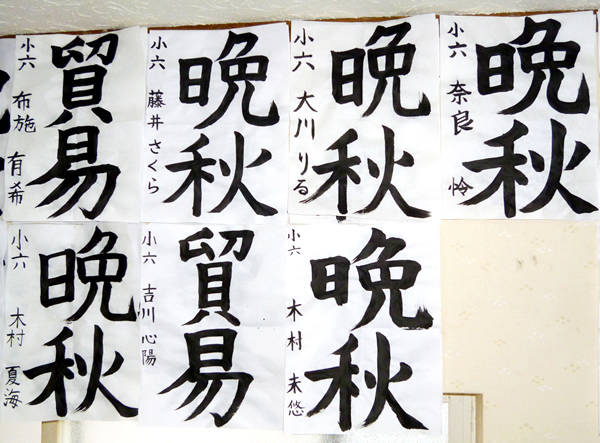 貿易
小六 布施 有希
晩秋
小六 藤井 さくら
晩秋
小六 大川 りる
晩秋
小六 奈良 怜
晩秋
小六 木村 夏海
貿易
小六 吉川 心陽
晩秋
小六 木村 未悠